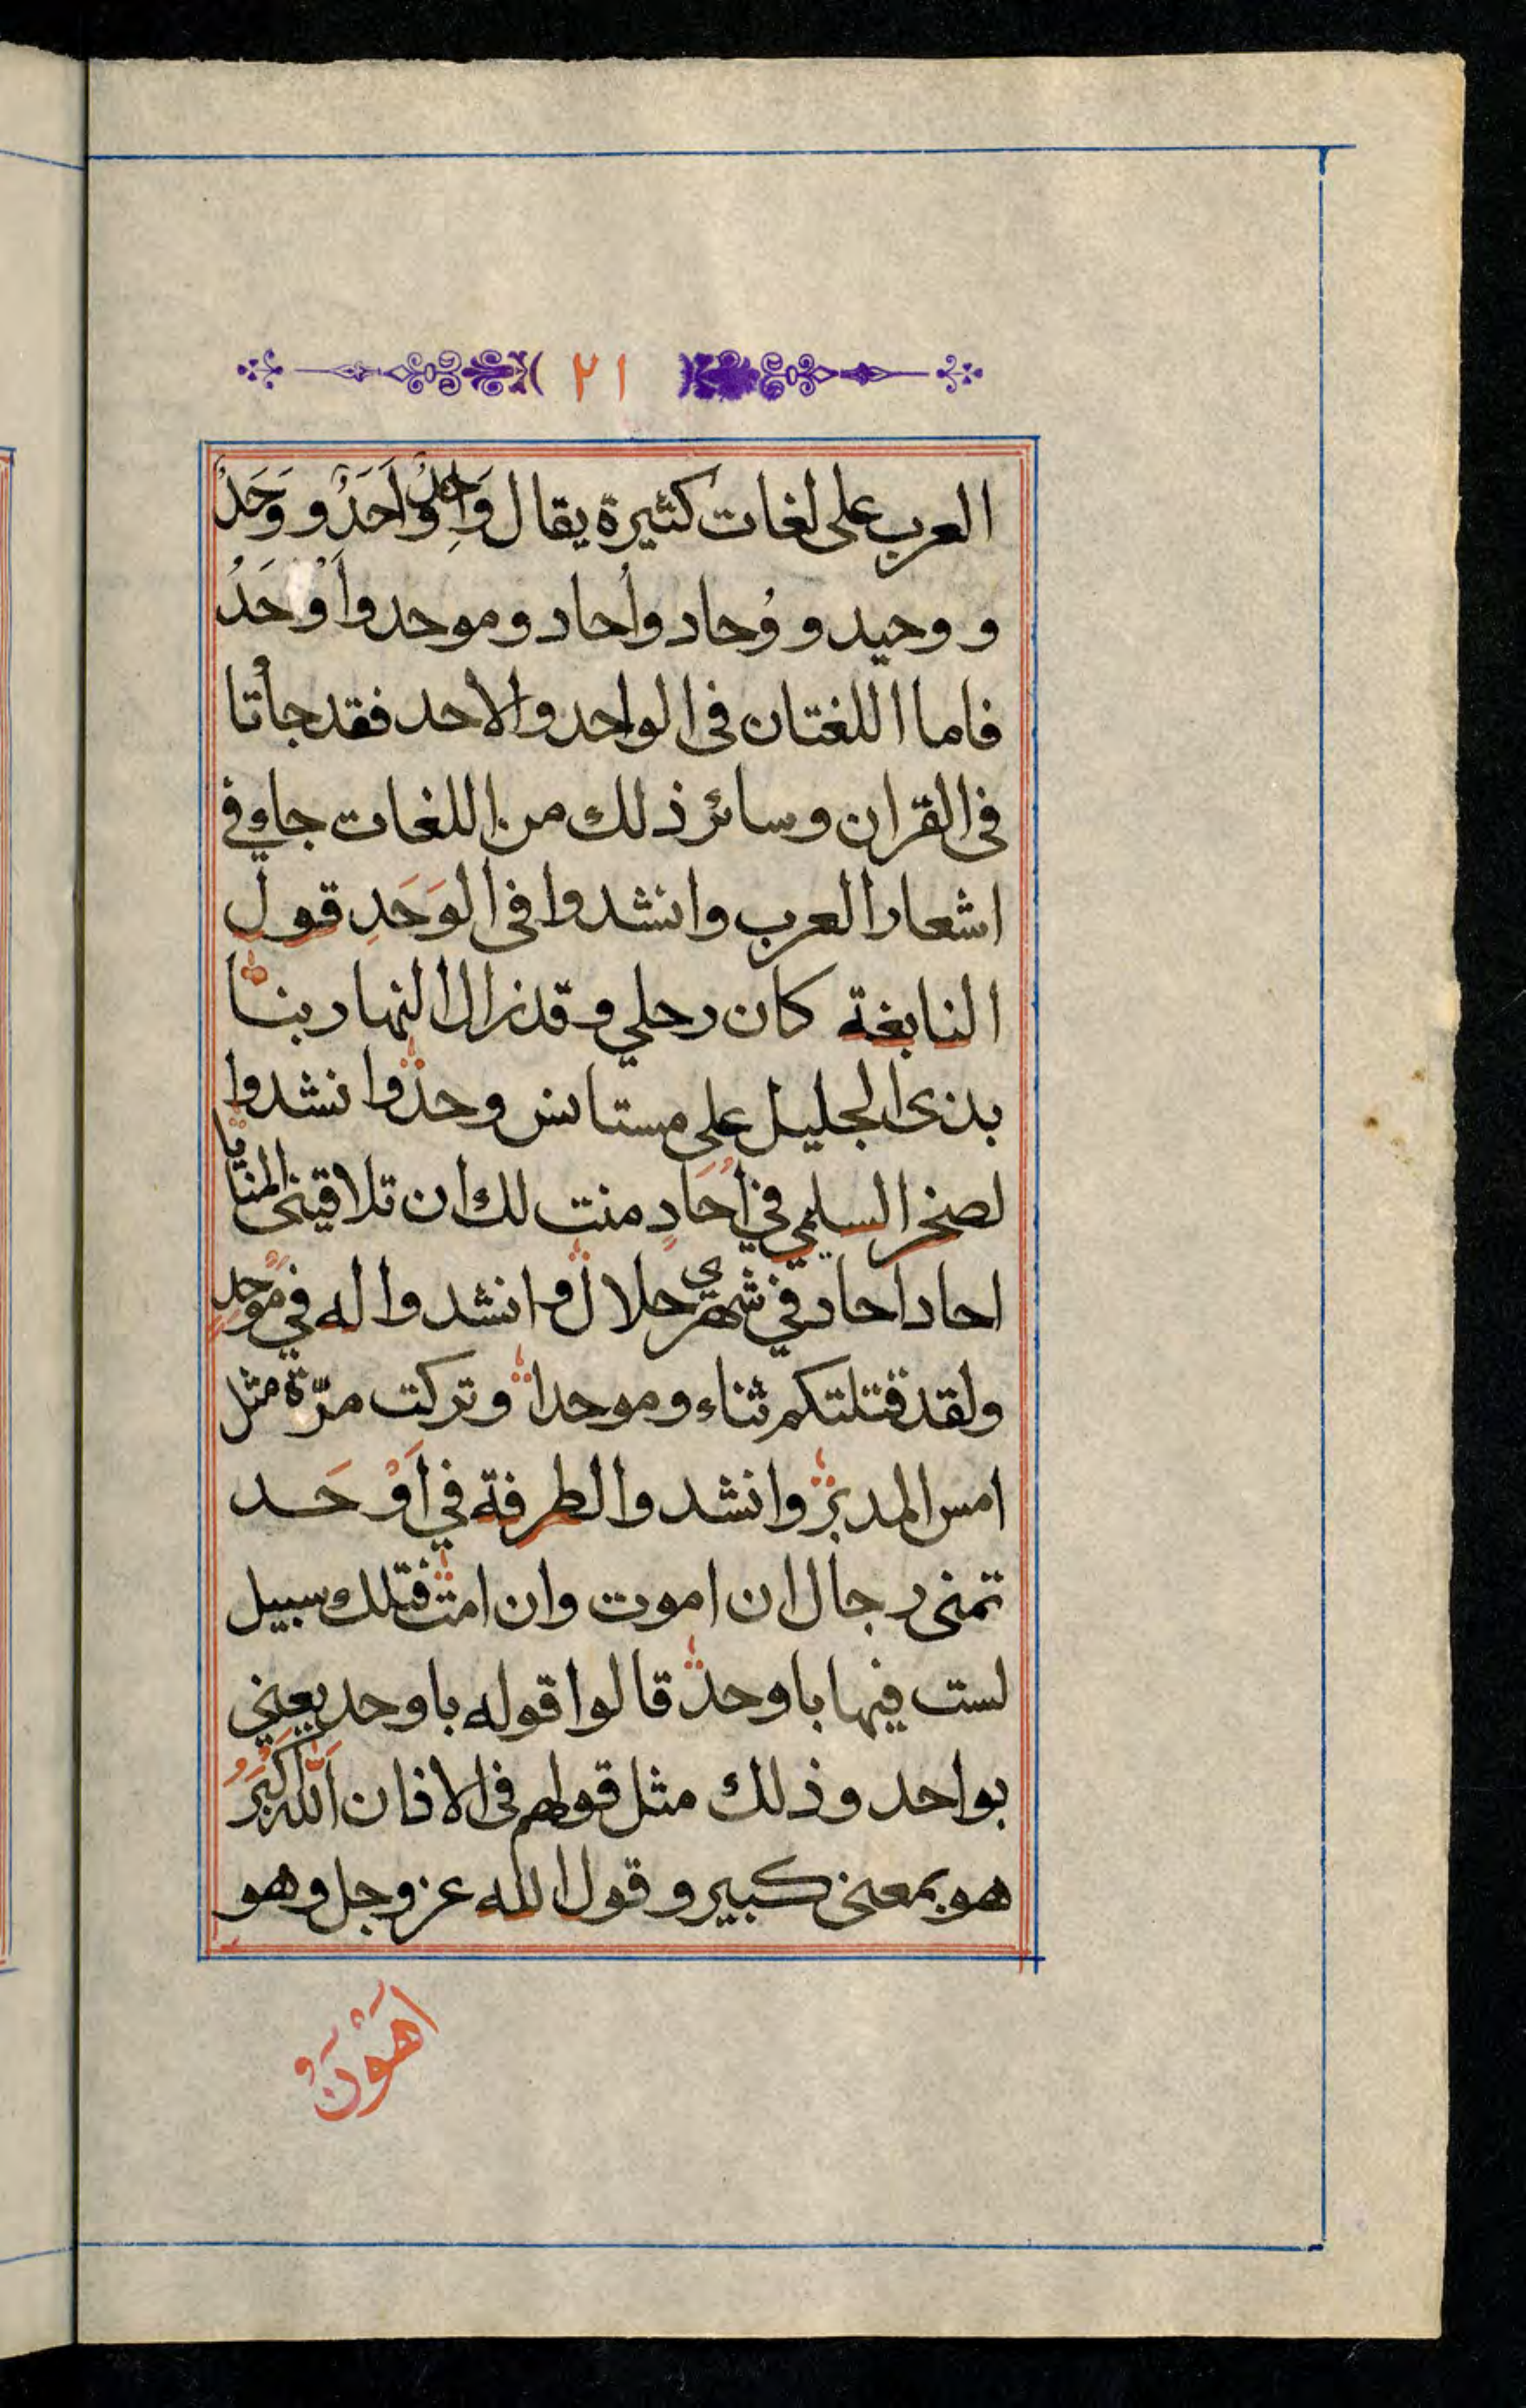 ٢١
العرب على لغات كثيرة يقال وَاحِدٌ وَاَحَدٌ و وَحَدٌ
و وحيد و وُحاد واُحاد وموحد واَوْحَدُ
فاما اللغتان فى الواحد والاحد فقد جأتا
فى القران وسائر ذلك من اللغات جاء فى
اشعار العرب وانشدوا فى الوَحَدِ قول
النابغة كان رحلي وقد زال النهار بنا
بذى الجليل على مستانس وحد وانشدوا
لصخر السليمي في اُحَادٍ منت لك ان تلاقينى المنايا
احاد احاد في شهري حلال وانشدوا له في مَوْحدٍ
ولقد قتلتكم ثناء وموحدا وتركت مرّة مثل
امس المدبر وانشدوا لطرفة في اَوْحَد
تمنى رجال ان اموت وان امت فتلك سبيل
لست فيها باوحد قالوا قوله باوحد يعني
بواحد وذلك مثل قولهم فى الاذان اَللّٰهُ اَكْبَرُ
هو بمعنى كبير وقول الله عز وجل وهو
اَهْوَنُ